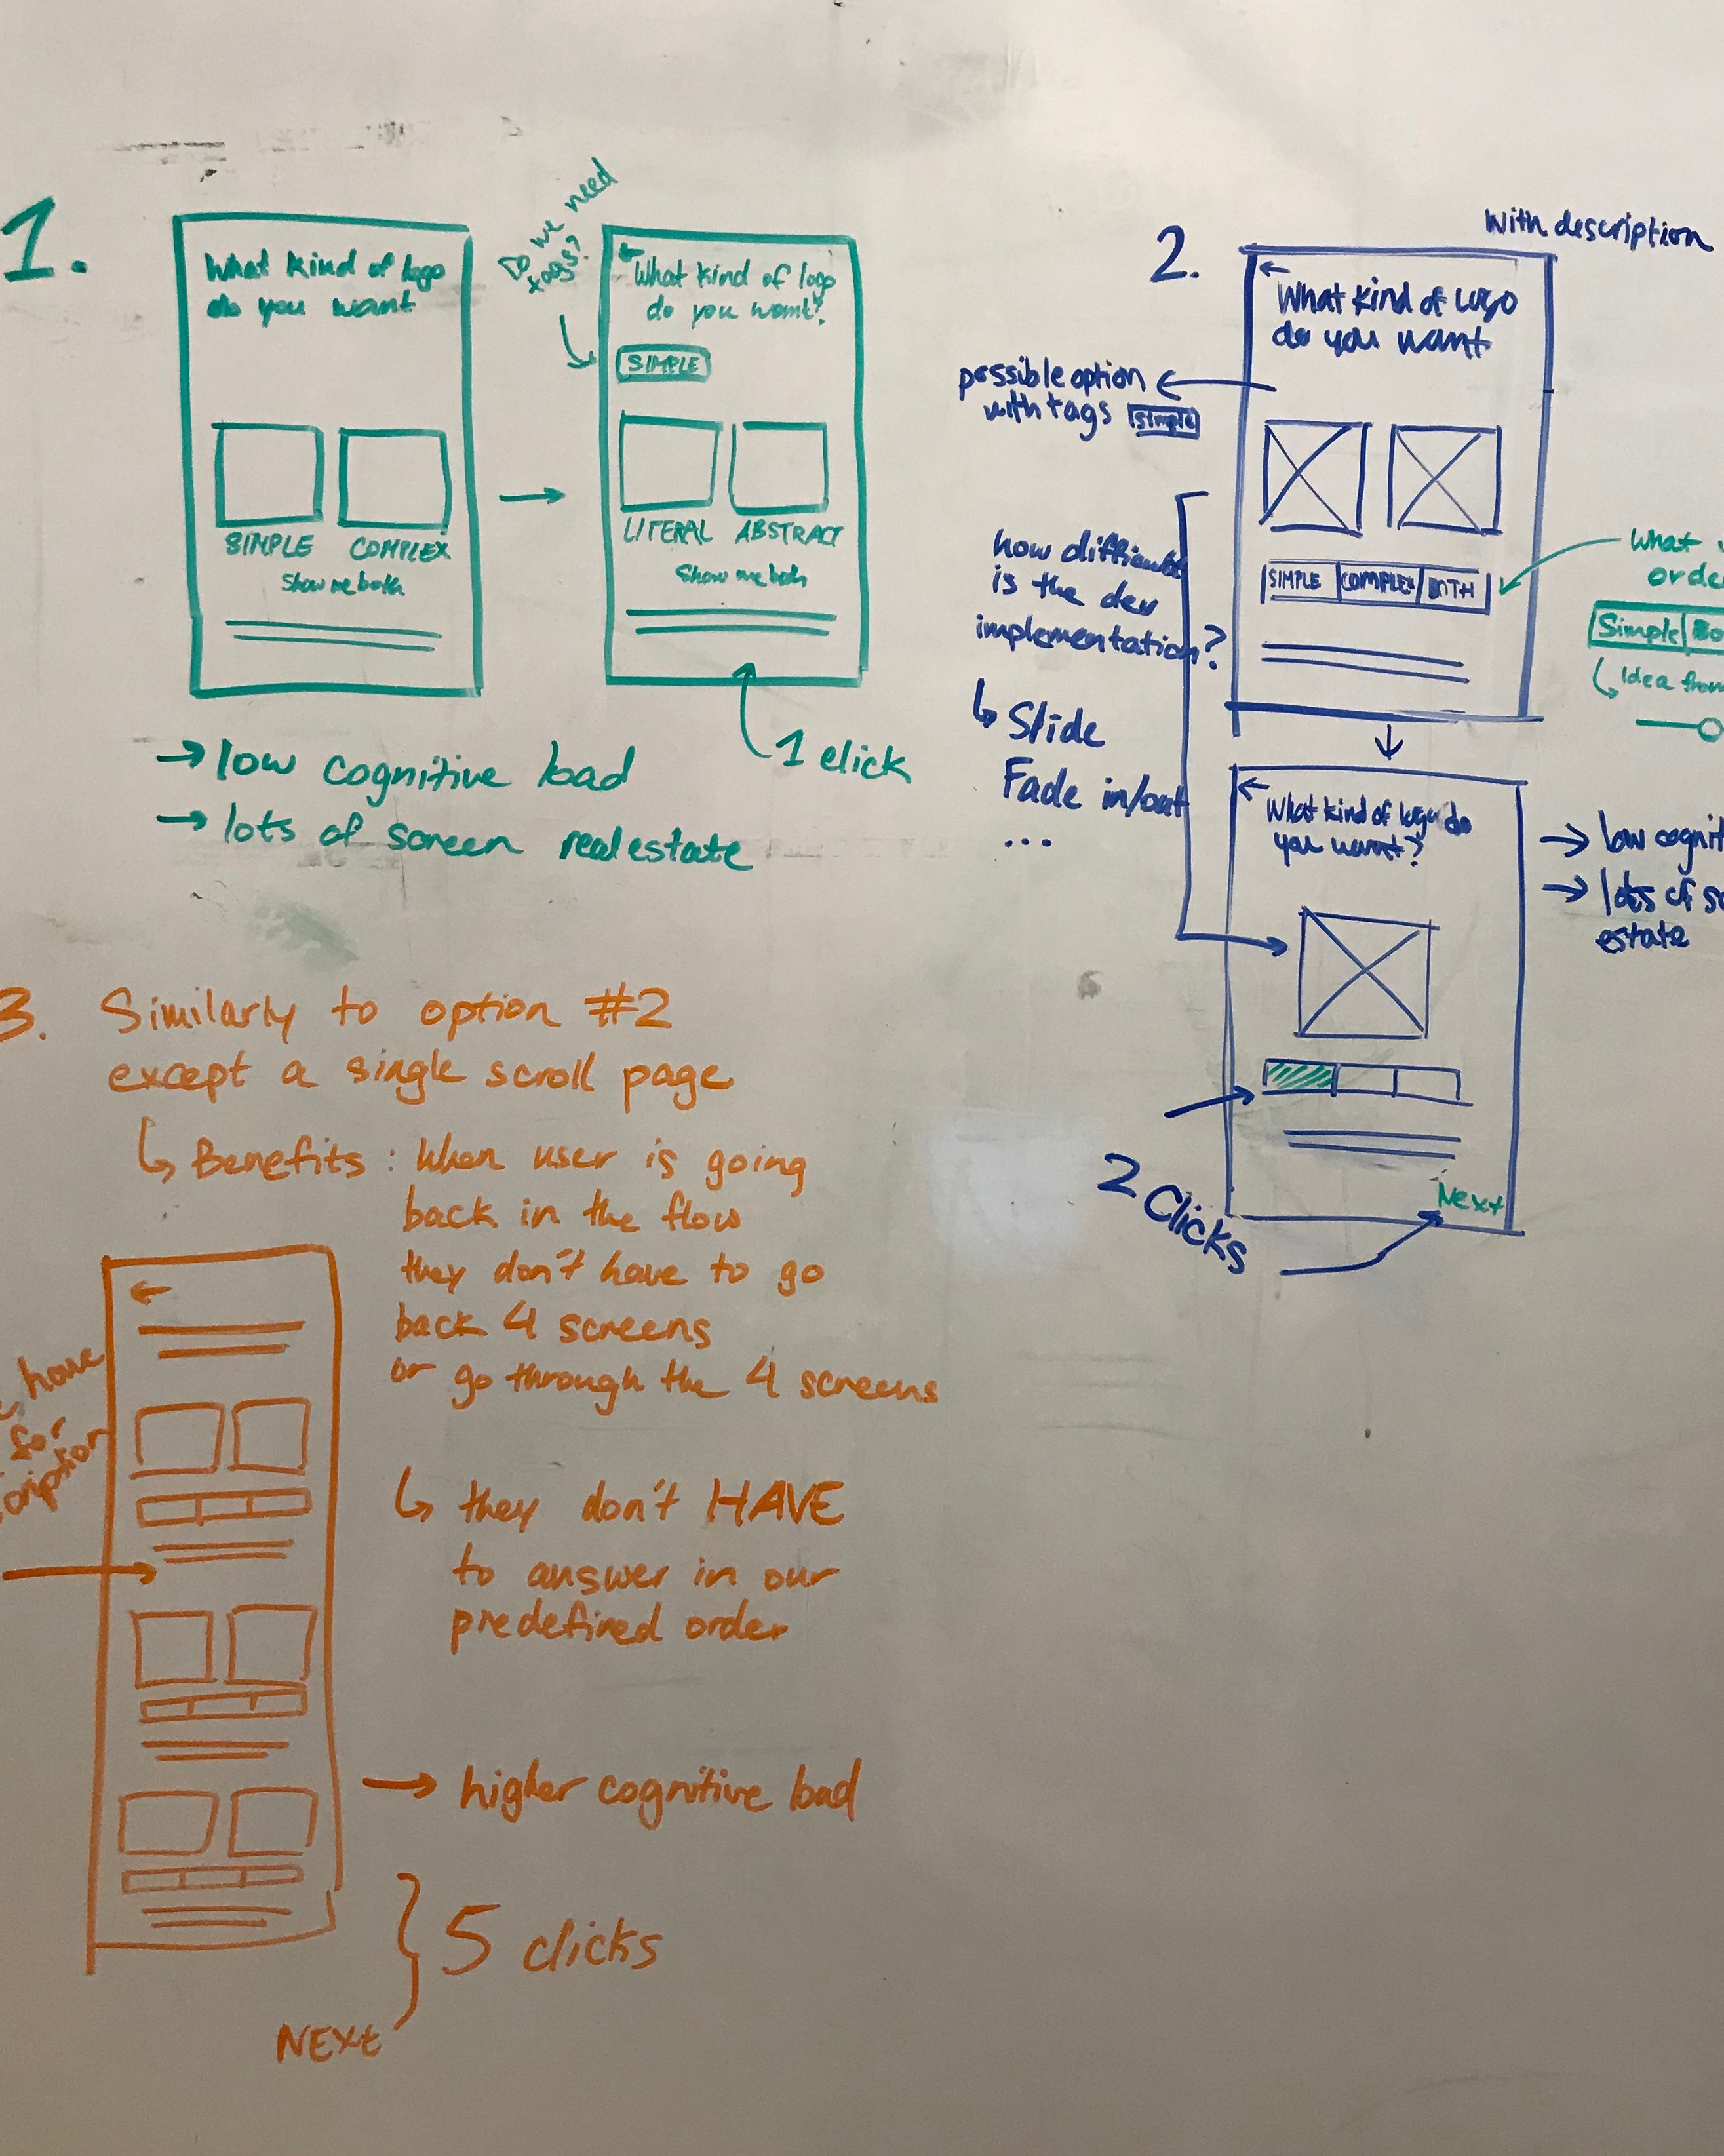 1.
What kind of logo
do you want
SIMPLE COMPLEX
Show me both
Do we need
tags?
What kind of logo
do you want?
SIMPLE
LITERAL ABSTRACT
Show me both
1 click
→ low cognitive load
→ lots of screen real estate
2.
With description
What kind of logo
do you want
possible option
with tags simple
SIMPLE COMPLEX BOTH
What
orde
Simple Bo
Idea from
how difficult
is the dev
implementation?
Slide
Fade in/out
...
What kind of logo do
you want?
→ low cognit
→ lots of sc
estate
2 Clicks
Next
3. Similarly to option #2
except a single scroll page
Benefits: When user is going
back in the flow
they don't have to go
back 4 screens
or go through the 4 screens
they don't HAVE
to answer in our
predefined order
have
for
cription
→ higher cognitive load
5 clicks
NEXt